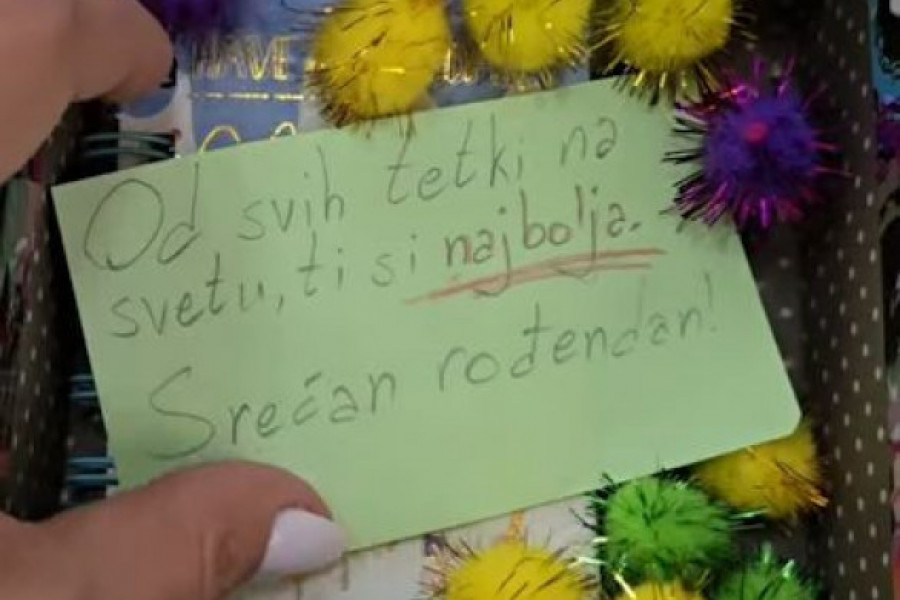 HAVE
Od svih tetki na
svetu, ti si najbolja.
Srećan rođendan!